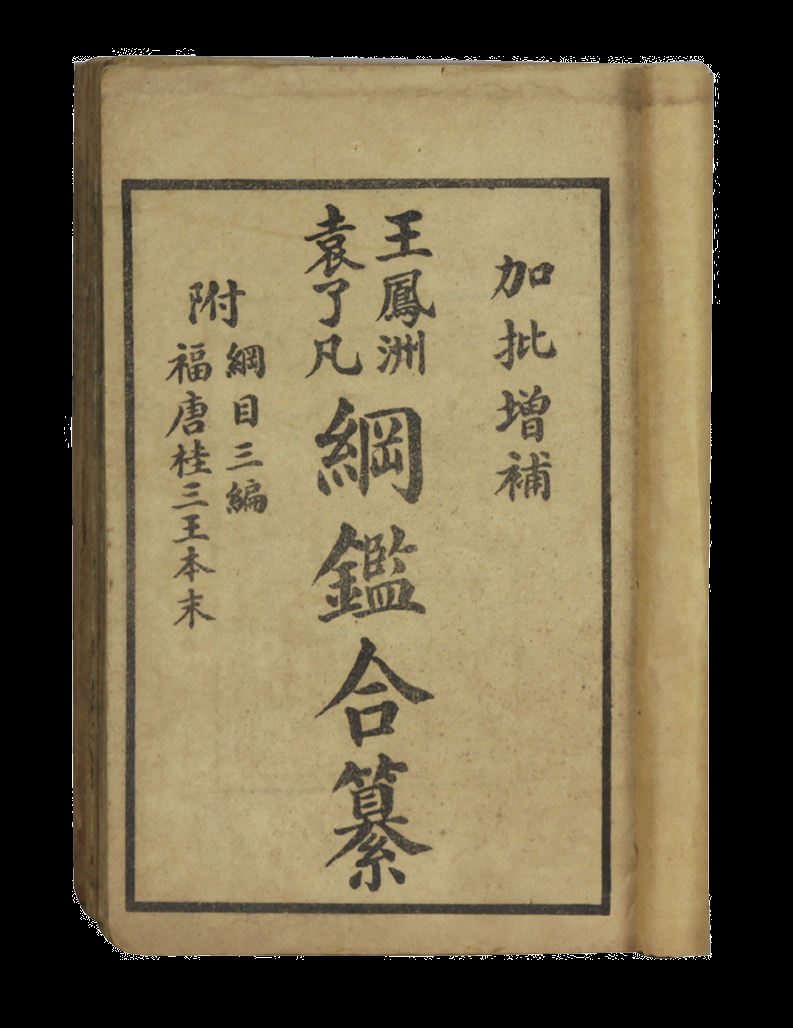 加批增補
王鳳洲
袁了凡
綱鑑合纂
附
綱目三編
福唐桂三王本末